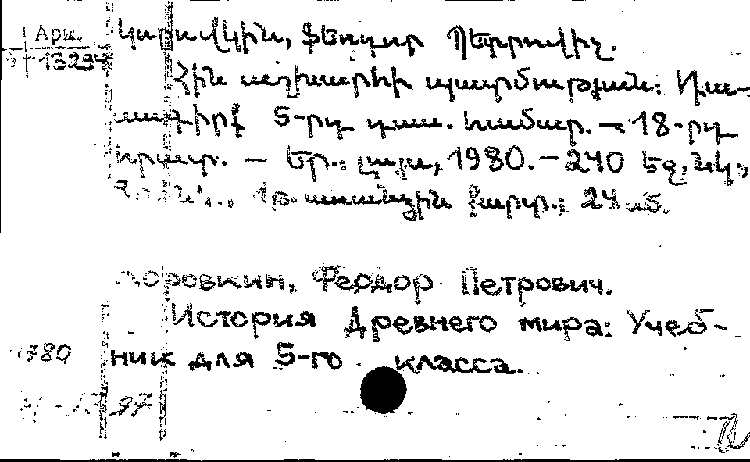 Արմ. Կորովկին, Ֆեոդոր Պետրովիչ.
5-13294
Հին աշխարհի պատմություն: Դա-
սագիրք 5-րդ դաս. համար. – 18-րդ
հրատ. – Եր.: Լույս, 1980. – 240 եջ, նկ.;
1թ. առանձին քարտ.; 24 սմ.
Коровкин, Феодор Петрович.
История Древнего мира: Учеб-
ник для 5-го класса.
1780